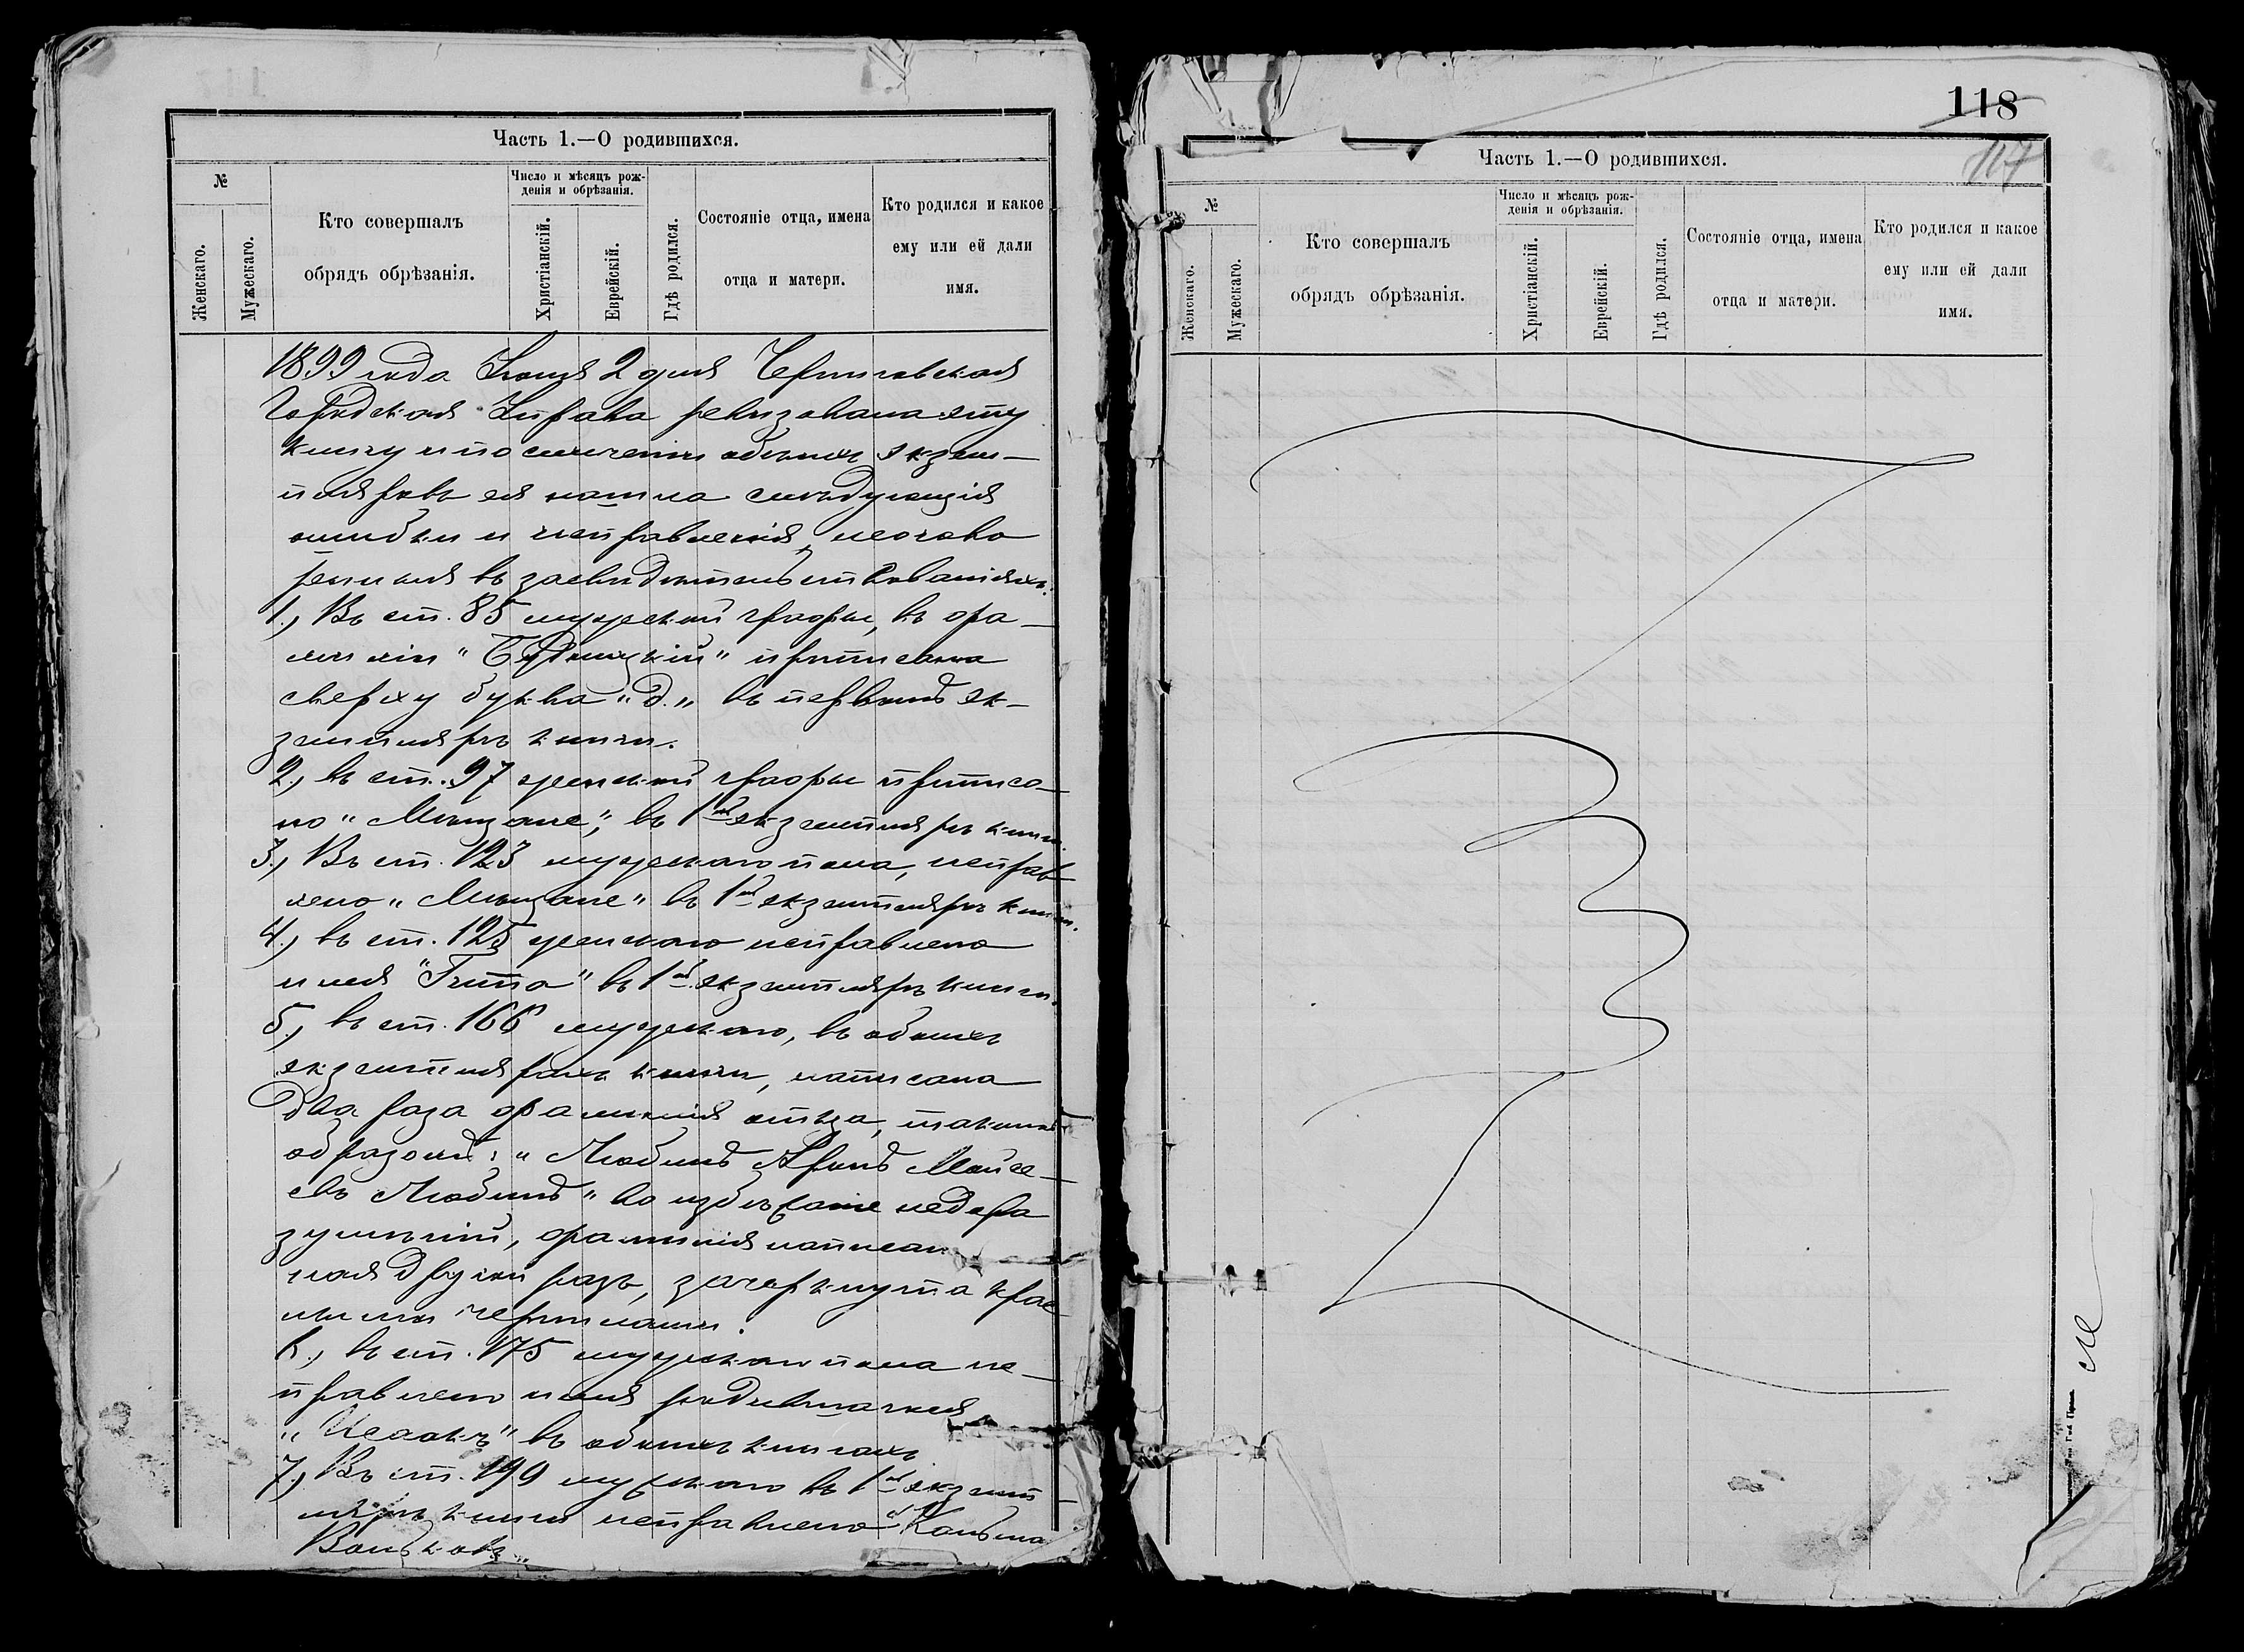 Часть 1.—О родившихся.
№
Женскаго.
Мужескаго.
Кто совершалъ
обрядъ обрѣзанія.
Число и мѣсяцъ рож-
денія и обрѣзанія.
Христіанскій.
Еврейскій.
Гдѣ родился.
Состояніе отца, имена
отца и матери.
Кто родился и какое
ему или ей дали
имя.
1899 года Іюня 2 дня Черниговская
Городская Управа ревизовала эту
книгу и по сличеніи обоихъ экзем-
пляровъ ея нашла слѣдующія
ошибки и исправленія, неогово
ренныя въ засвидѣтельствованіяхъ:
1., Въ ст. 85 мужеской графы, въ фа-
миліи "Бродицкій" приписана
сверху буква "д" въ первомъ эк-
земплярѣ книги.
2., въ ст. 97 женской графы приписа-
но "Мѣщане", въ 1мъ экземплярѣ книги.
3., Въ ст. 123 мужескаго пола, исправ
лено "Мѣщане" въ 1мъ экземплярѣ книги.
4., въ ст. 125 женскаго исправлено
имя "Гита" въ 1мъ экземплярѣ книги.
5., въ ст. 166 мужескаго, въ обоихъ
экземплярахъ книги, написана
два раза фамилія отца, такимъ
образомъ: "Любинъ Аронъ Мойсе-
евъ Любинъ" во избѣжаніе недора
зумѣній, фамилія написан
ная другой разъ, зачеркнута крас
ными чернилами.
6., въ ст. 175 мужескаго пола ис-
правлено имя родившагося
"Исаакъ" въ обоихъ книгахъ
7., Въ ст. 199 мужескаго въ 1мъ экземп-
лярѣ книги исправлено "Кальма
Вольковъ"
118
117
Часть 1.—О родившихся.
№
Женскаго.
Мужескаго.
Кто совершалъ
обрядъ обрѣзанія.
Число и мѣсяцъ рож-
денія и обрѣзанія.
Христіанскій.
Еврейскій.
Гдѣ родился.
Состояніе отца, имена
отца и матери.
Кто родился и какое
ему или ей дали
имя.